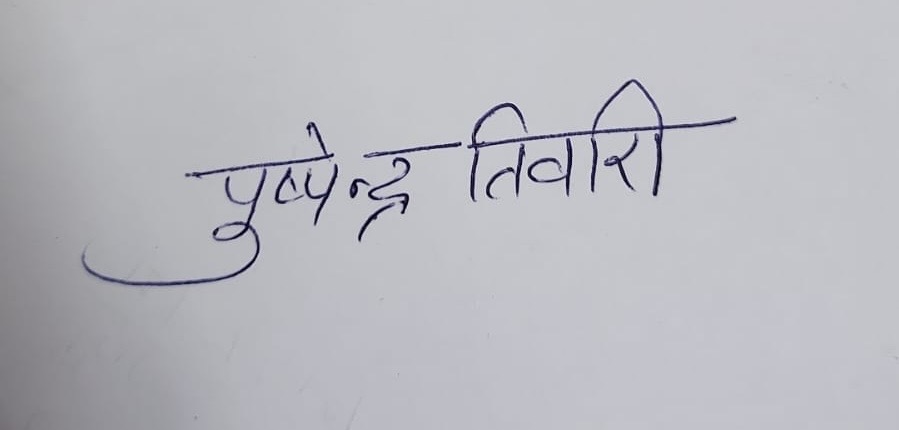 पुष्पेन्द्र तिवारी